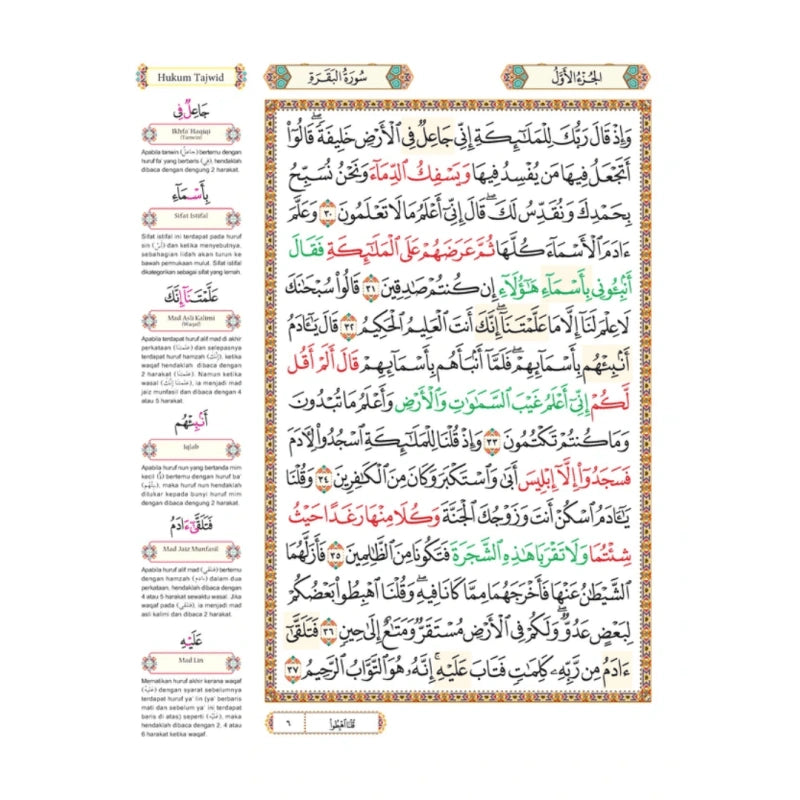 Hukum Tajwid
سُورَةُ الْبَقَرَةِ
الجُزْءُ الأَوَّلُ
جَاعِلٌ فِى
Ikhfa' Haqiqi
(Tanwin)
Apabila tanwin (جَاعِلٌ) bertemu dengan
huruf fa' yang berbaris (فِى), hendaklah
dibaca dengan dengung 2 harakat.
بِأَسْمَآءِ
Sifat Istifal
Sifat istifal ini terdapat pada huruf
sin (سْ) dan ketika menyebutnya,
sebahagian lidah akan turun ke
bawah permukaan mulut. Sifat istifal
dikategorikan sebagai sifat yang lemah.
عَلَّمْتَنَآ إِنَّكَ
Mad Asli Kalimi
(Waqaf)
Apabila terdapat huruf alif mad di akhir
perkataan (عَلَّمْتَنَآ) dan selepasnya
terdapat huruf hamzah (إِنَّكَ), ketika
waqaf hendaklah dibaca dengan
2 harakat (عَلَّمْتَنَا). Namun ketika
wasal (عَلَّمْتَنَآ إِنَّكَ), ia menjadi mad
jaiz munfasil dan dibaca dengan 4
atau 5 harakat.
أَنۢبِئْهُم
Iqlab
Apabila huruf nun yang bertanda mim
kecil (نۢ) bertemu dengan huruf ba'
(بِئْهُم), maka huruf nun hendaklah
ditukar kepada bunyi huruf mim
dengan dengung 2 harakat.
فَتَلَقَّىٰٓ ءَادَمُ
Mad Jaiz Munfasil
Apabila huruf alif mad (فَتَلَقَّىٰٓ) bertemu
dengan hamzah (ءَادَمُ) dalam dua
perkataan, hendaklah dibaca dengan
4 atau 5 harakat sewaktu wasal. Jika
waqaf pada (فَتَلَقَّىٰ), ia menjadi mad
asli kalimi dan dibaca 2 harakat.
عَلَيْهِ
Mad Lin
Mematikan huruf akhir kerana waqaf
(عَلَيْهْ) dengan syarat sebelumnya
terdapat huruf ya' lin (ya' berbaris
mati dan sebelum ya' ini terdapat
baris di atas) seperti (عَلَيْهْ), maka
hendaklah dibaca dengan 2, 4 atau
6 harakat ketika waqaf.
وَإِذْ قَالَ رَبُّكَ لِلْمَلَـٰٓئِكَةِ إِنِّى جَاعِلٌ فِى ٱلْأَرْضِ خَلِيفَةً ۖ قَالُوٓا۟
أَتَجْعَلُ فِيهَا مَن يُفْسِدُ فِيهَا وَيَسْفِكُ ٱلدِّمَآءَ وَنَحْنُ نُسَبِّحُ
بِحَمْدِكَ وَنُقَدِّسُ لَكَ ۖ قَالَ إِنِّىٓ أَعْلَمُ مَا لَا تَعْلَمُونَ ٣٠ وَعَلَّمَ
ءَادَمَ ٱلْأَسْمَآءَ كُلَّهَا ثُمَّ عَرَضَهُمْ عَلَى ٱلْمَلَـٰٓئِكَةِ فَقَالَ
أَنۢبِـُٔونِى بِأَسْمَآءِ هَـٰٓؤُلَآءِ إِن كُنتُمْ صَـٰدِقِينَ ٣١ قَالُوا۟ سُبْحَـٰنَكَ
لَا عِلْمَ لَنَآ إِلَّا مَا عَلَّمْتَنَآ ۖ إِنَّكَ أَنتَ ٱلْعَلِيمُ ٱلْحَكِيمُ ٣٢ قَالَ يَـٰٓـَٔادَمُ
أَنۢبِئْهُم بِأَسْمَآئِهِمْ ۖ فَلَمَّآ أَنۢبَأَهُم بِأَسْمَآئِهِمْ قَالَ أَلَمْ أَقُل
لَّكُمْ إِنِّىٓ أَعْلَمُ غَيْبَ ٱلسَّمَـٰوَٰتِ وَٱلْأَرْضِ وَأَعْلَمُ مَا تُبْدُونَ
وَمَا كُنتُمْ تَكْتُمُونَ ٣٣ وَإِذْ قُلْنَا لِلْمَلَـٰٓئِكَةِ ٱسْجُدُوا۟ لِـَٔادَمَ
فَسَجَدُوٓا۟ إِلَّآ إِبْلِيسَ أَبَىٰ وَٱسْتَكْبَرَ وَكَانَ مِنَ ٱلْكَـٰفِرِينَ ٣٤ وَقُلْنَا
يَـٰٓـَٔادَمُ ٱسْكُنْ أَنتَ وَزَوْجُكَ ٱلْجَنَّةَ وَكُلَا مِنْهَا رَغَدًا حَيْثُ
شِئْتُمَا وَلَا تَقْرَبَا هَـٰذِهِ ٱلشَّجَرَةَ فَتَكُونَا مِنَ ٱلظَّـٰلِمِينَ ٣٥ فَأَزَلَّهُمَا
ٱلشَّيْطَـٰنُ عَنْهَا فَأَخْرَجَهُمَا مِمَّا كَانَا فِيهِ ۖ وَقُلْنَا ٱهْبِطُوا۟ بَعْضُكُمْ
لِبَعْضٍ عَدُوٌّ ۖ وَلَكُمْ فِى ٱلْأَرْضِ مُسْتَقَرٌّ وَمَتَـٰعٌ إِلَىٰ حِينٍ ٣٦ فَتَلَقَّىٰٓ
ءَادَمُ مِن رَّبِّهِۦ كَلِمَـٰتٍ فَتَابَ عَلَيْهِ ۚ إِنَّهُۥ هُوَ ٱلتَّوَّابُ ٱلرَّحِيمُ ٣٧
قُلْنَا ٱهْبِطُوا۟
٦